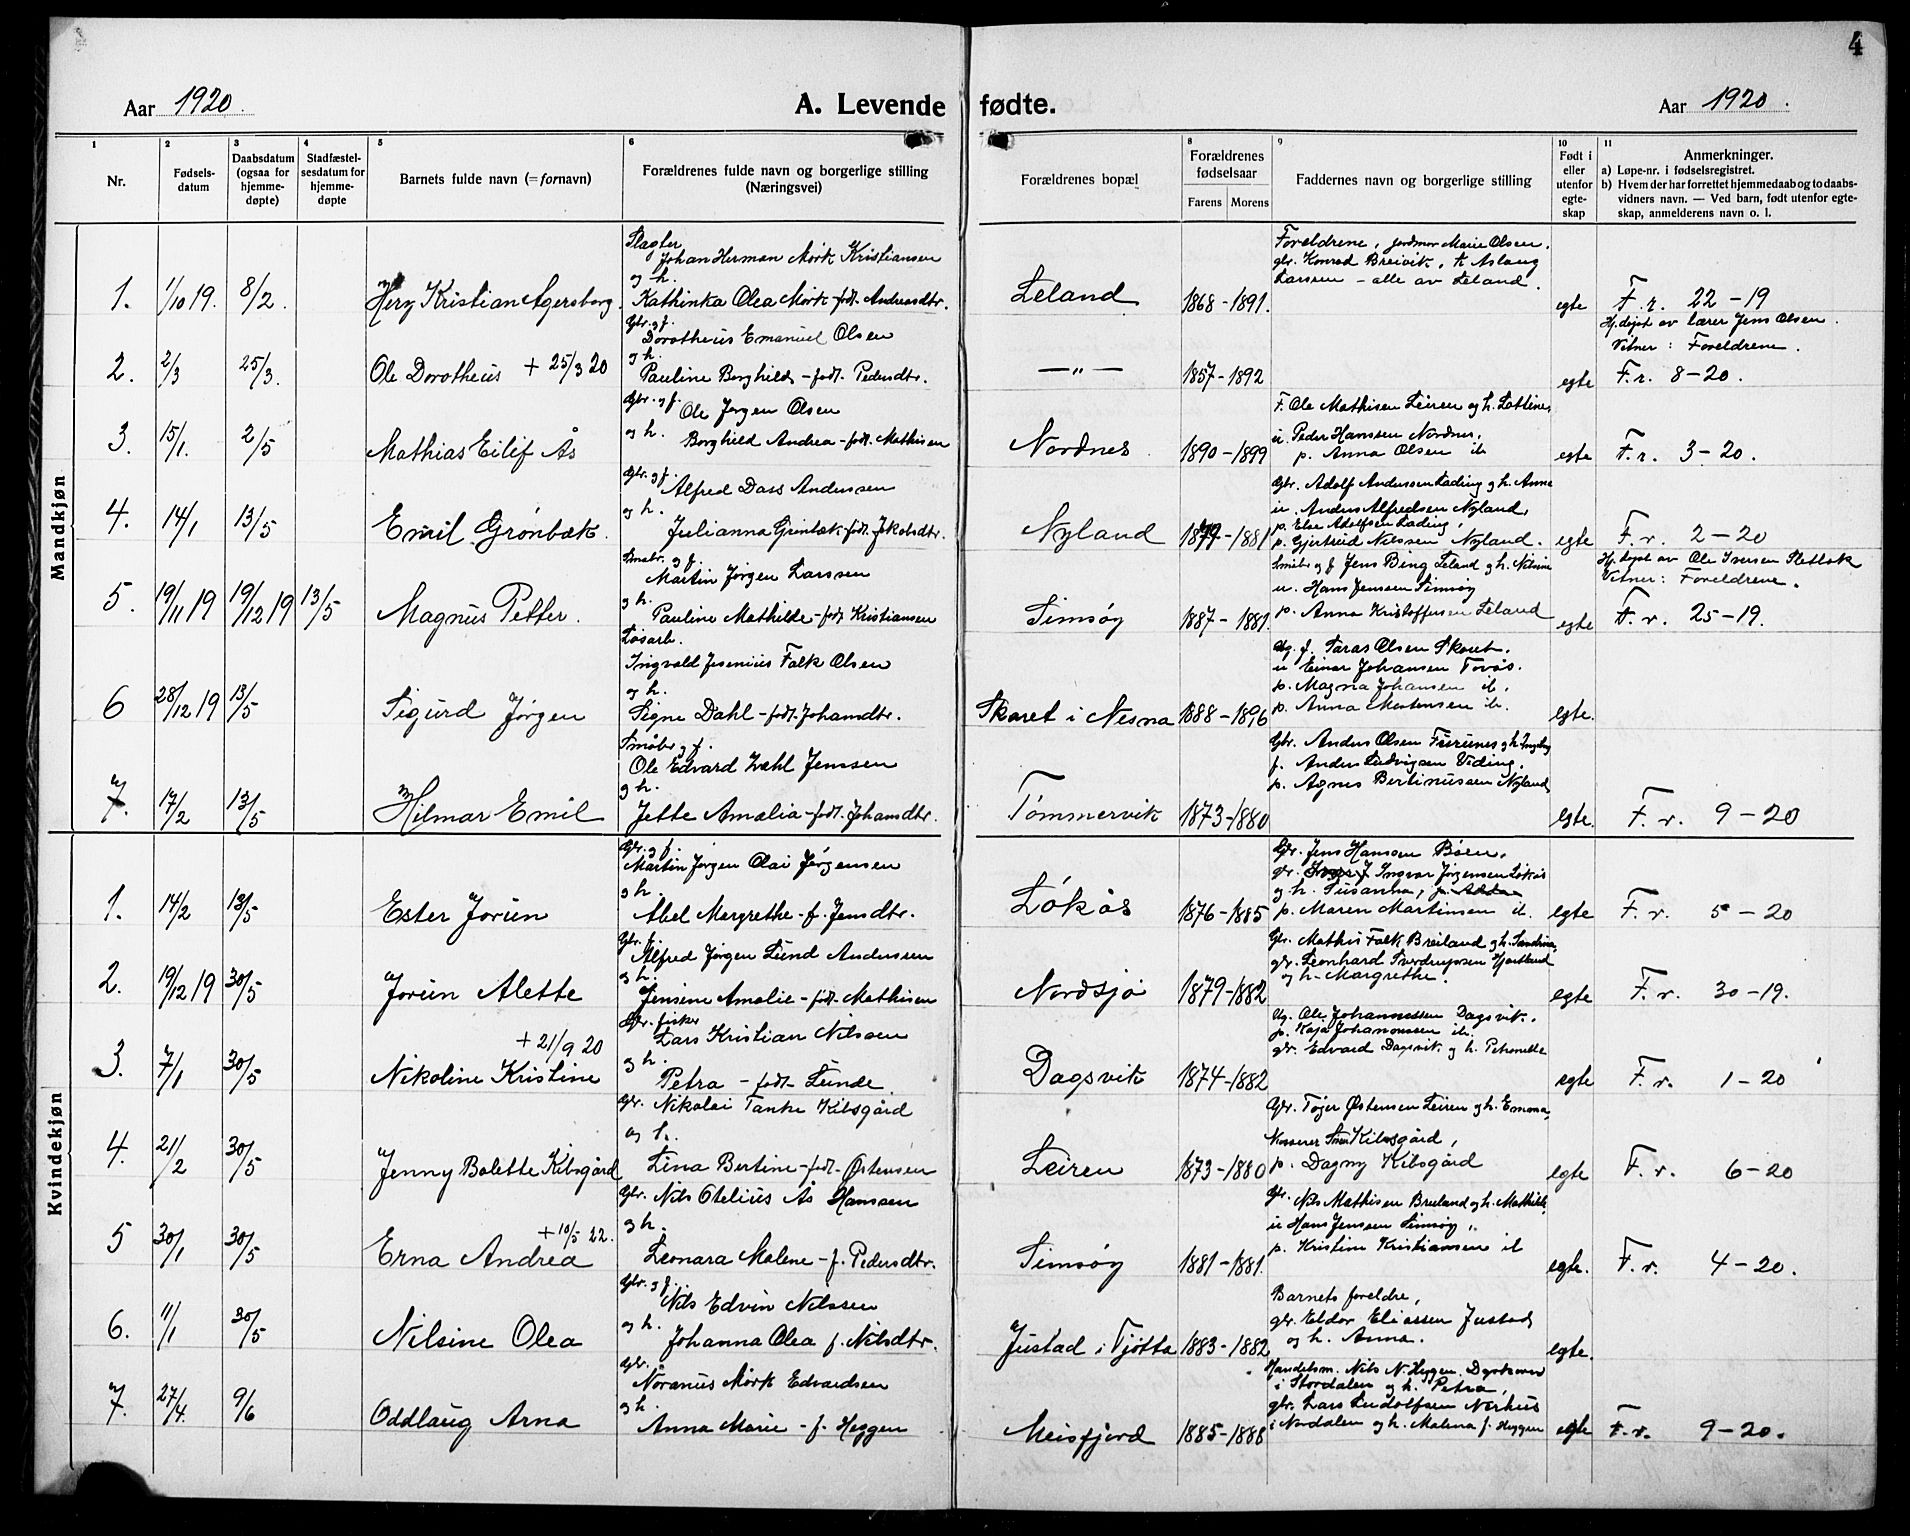 4
Aar 1920.
A. Levende fødte.
Aar 1920.
1
Nr.
2
Fødsels-
datum
3
Daabsdatum
(ogsaa for
hjemme-
døpte)
4
Stadfæstel-
sesdatum for
hjemme-
døpte
5
Barnets fulde navn (= fornavn)
6
Forældrenes fulde navn og borgerlige stilling
(Næringsvei)
Forældrenes bopæl
8
Forældrenes
fødselsaar
Farens Morens
9
Faddernes navn og borgerlige stilling
10
Født i
eller
utenfor
egte-
skap
11
Anmerkninger.
a) Løpe-nr. i fødselsregistret.
b) Hvem der har forrettet hjemmedaab og to daabs-
vidners navn. — Ved barn, født utenfor egte-
skap, anmelderens navn o. l.
Mandkjøn
1. 1/10 19. 8/2. Kristian Agersborg.
Slagter
Johan Herman Mørk Kristiansen
og h.
Kathinka Olea Mørk - født Andreasdtr.
Leland 1868 - 1891.
Foreldrene, jordmor Marie Olsen.
gbr. Konrad Breivik, Aslaug
Larssen - alle av Leland.
egte F. r. 22 - 19
2. 2/3 25/3. Ole Dorotheus + 25/3 20
Gbr. og f.
Dorotheus Emanuel Olsen
og h.
Pauline Borghild - født Pedersdtr.
— „ — 1857 - 1892
egte
Hj.døpt av lærer Jens Olsen.
Vitner: Foreldrene.
F. r. 8 - 20.
3. 15/1. 2/5 Mathias Eilif Ås
Gbr. og f.
Ole Jørgen Olsen
og h.
Borghild Andrea - født Mathisen
Nordnes 1890 - 1899
F. Ole Mathisen Leiren og h.
u. Peder Hanssen Nordnes,
p. Anna Olsen ib
egte F. r. 3 - 20.
4. 14/1 13/5 Emil Grönbæk.
Gbr. og f.
Alfred Dass Andersen
og h.
Julianna Grönbæk - født Jakobsdtr.
Nyland 1879 - 1881
Gbr. Adolf Andersen Lading og h. Anna
u. Anders Alfredsen Nyland,
p. Else Adolfsen Lading,
p. Gjertrud Nilssen Nyland.
egte F. r. 2 - 20
5. 19/11 19 19/12 19 13/5 Magnus Petter.
Småbr. og f.
Martin Jørgen Larssen
og h.
Pauline Mathilde - født Kristiansen
Simsøy 1887 - 1881.
Småbr og f Jens Bing Leland og h. Nilsine
u. Hans Jenssen Simsøy
p. Anna Kristoffersen Leland
egte
Hj. døpt av Ole Iversen Sletbak
Vitner: Foreldrene.
F. r. 25 - 19.
6 28/12 19 13/5 Sigurd Jørgen
Løsarb.
Ingvald Jesenius Falk Olsen
og h.
Signe Dahl - født Johansdtr.
Skaret i Nesna 1888 - 1896
Ug. f. Olsen Skaret.
u Einar Johansen Tovås.
p. Magna Johansen ib.
p. Anna Mortensen ib.
egte.
7. 17/2 13/5 Hilmar Emil
Småbr og f.
Ole Edvard Jenssen
og h.
Jette Amalia - født Johansdtr.
Tømmervik 1873 - 1880
Gbr. Anders Olsen Furunes og h. Ingeborg
f. Anders Ludvigsen Viding,
p. Agnes Bertinussen Nyland
egte. F. r. 9 - 20
Kvindekjøn
1. 14/2 13/5 Ester Jorun
Gbr. og f.
Martin Jørgen Olai Jørgensen
og h.
Abel Margrethe - f. Jensdtr.
Løkås 1876 - 1885
Gbr. Jens Hansen Bøen,
gbr. Ingvar Jørgensen Løkås
og h. Susanna,
p. Maren Martinsen ib.
egte F. r. 5 - 20
2. 19/12 19 30/5 Jorun Alette
Gbr. f.
Alfred Jørgen Lund Anderssen
og h.
Jensine Amalie - født Mathisen
Nordsjø 1879 - 1882
Gbr. Mathis Falk Breiland og h. Sandrina,
gbr. Leonhard Sverdrupsen Hjartland
og h. Margrethe.
egte F. r. 30 - 19.
3. 7/1 30/5 Nikoline Kristine + 21/9 20
Gbr. fisker
Lars Kristian Nilssen
og h.
Petra - født Lunde
Dagsvik 1874 - 1882
Ug. Ole Johannessen Dagsvik,
p. Kaja Johannessen ib.
gbr. Edvard Dagsvik og h. Petronelle
egte F. r. 1 - 20
4. 21/2 30/5 Jenny Bolette Kibsgård
Gbr. Nikolai Tanke Kibsgård
og h.
Lina Bertine - født Østensen
Leiren 1873 - 1880
Gbr. Tøger Østensen Leiren og h. Emona,
Kasserer Kibsgård,
p. Dagny Kibsgård
egte F. r. 6 - 20
5 30/1 30/5 Erna Andrea + 10/5 22.
Gbr. Nils Otelius Ås Hansen
og h.
Leonara Malene - f. Pedersdtr.
Simsøy 1881 - 1881.
Gbr. Nils Mathisen Breiland og h. Mathilde,
u Hans Jenssen Simsøy,
p. Kristine Kristiansen ib
egte. F. r. 4 - 20.
6. 11/1 30/5 Nilsine Olea
Gbr. og f.
Nils Edvin Nilssen
og h.
Johanna Olea f. Nilsdtr.
Justad i Tjøtta 1883 - 1882
Barnets foreldre,
gbr. Eldor Eliassen Justad
og h. Anna.
egte.
7. 27/4. 9/6 Oddlaug Arna
Gbr.
Noranus Mørk Edvardsen
og h.
Anna Marie - f. Heggen
Meisfjord 1885 - 1888
Handelsm. Nils N. Heggen,
i Stordalen og h. Petra,
gbr. Lars Ludolfsen Nerhus
i Nordalen og h. Malena f. Heggen
egte F. r. 9 - 20.